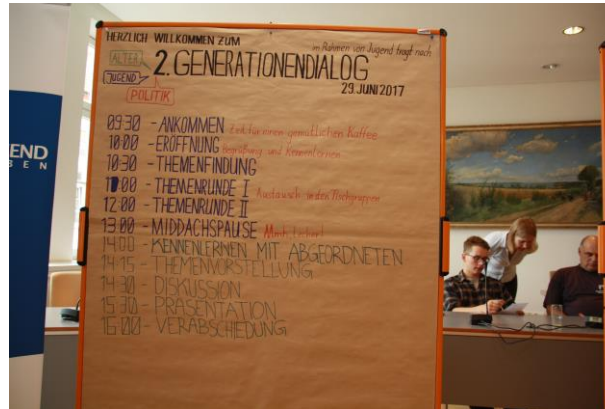 HERZLICH WILLKOMMEN ZUM
im Rahmen von Jugend fragt nach
ALTER
JUGEND
POLITIK
2. GENERATIONENDIALOG
29. JUNI 2017
09:30 - ANKOMMEN Zeit für einen gemütlichen Kaffee
10:00 - ERÖFFNUNG Begrüßung und Kennenlernen
10:30 - THEMENFINDUNG
11:00 - THEMENRUNDE I Austausch in den Tischgruppen
12:00 - THEMENRUNDE II
13:00 - MIDDACHSPAUSE Mmh, lecker!
14:00 - KENNENLERNEN MIT ABGEORDNETEN
14:15 - THEMENVORSTELLUNG
14:30 - DISKUSSION
15:30 - PRÄSENTATION
16:00 - VERABSCHIEDUNG
END
BEN